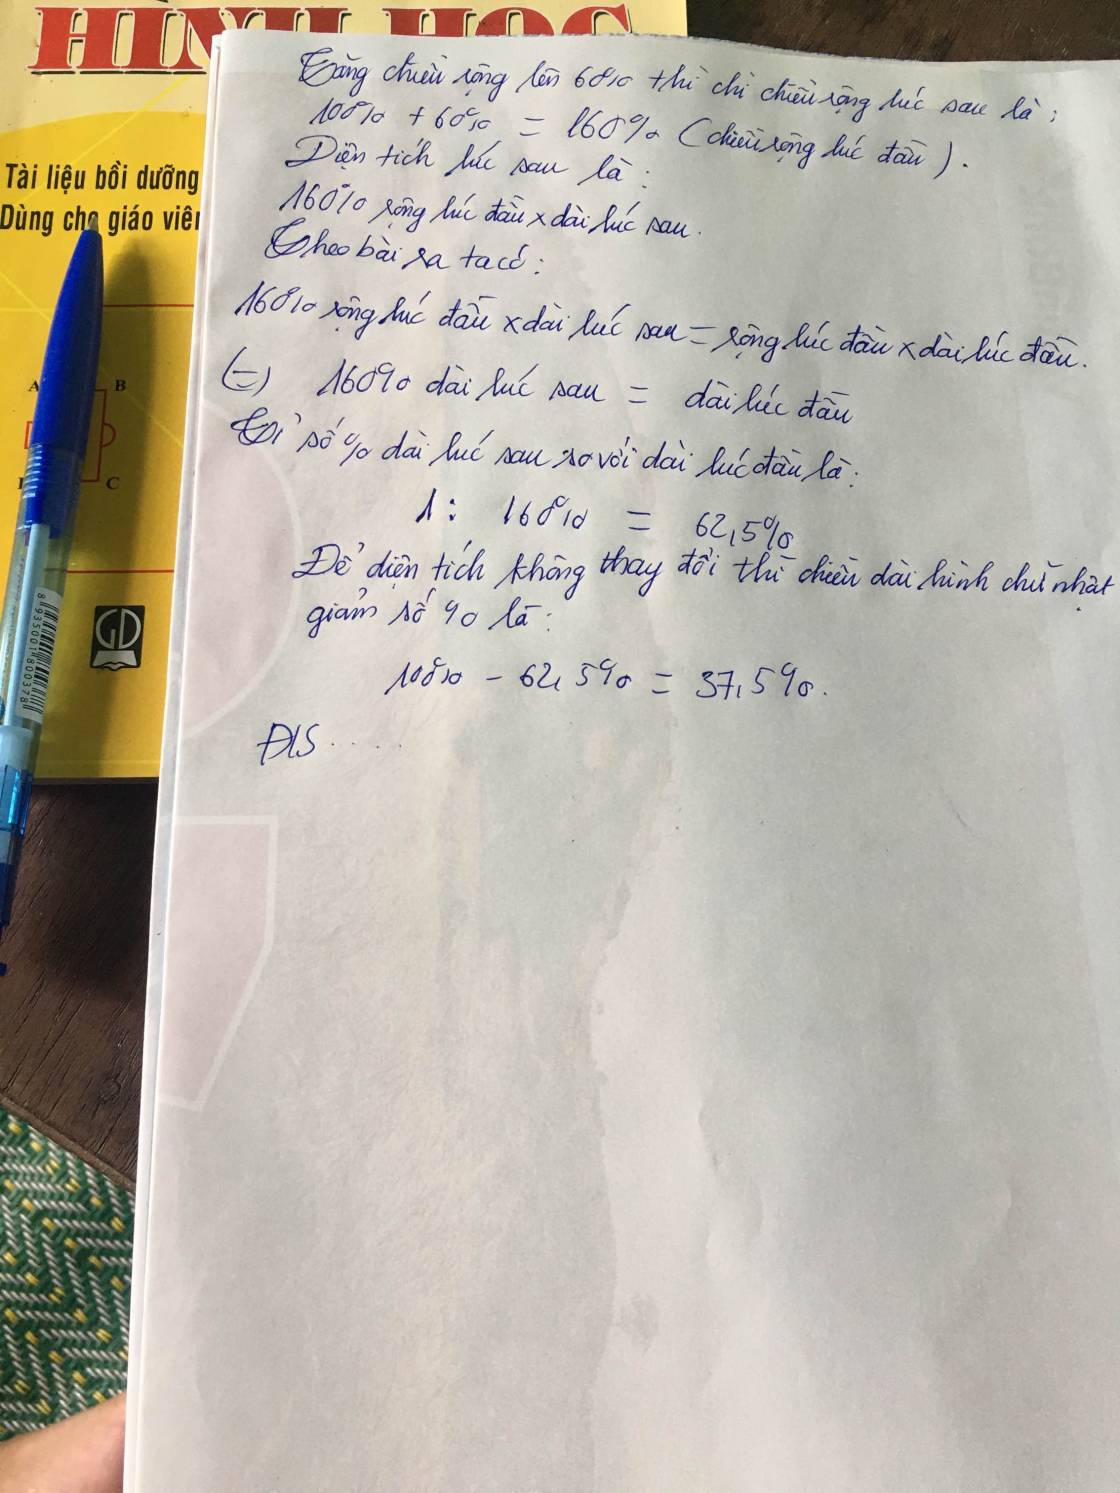 HÌNH HỌC
Tài liệu bồi dưỡng
Dùng cho giáo viên
A
B
C
GD
8935001800378
Tăng chiều rộng lên 60% thì chi chiều rộng lúc sau là:
100% + 60% = 160% (chiều rộng lúc đầu).
Diện tích lúc sau là:
160% rộng lúc đầu x dài lúc sau.
Theo bài ra ta có:
160% rộng lúc đầu x dài lúc sau = rộng lúc đầu x dài lúc đầu.
(=) 160% dài lúc sau = dài lúc đầu
Tỉ số % dài lúc sau so với dài lúc đầu là:
1 : 160% = 62,5%
Để diện tích không thay đổi thì chiều dài hình chữ nhật
giảm số % là:
100% - 62,5% = 37,5%.
Đ/S .....